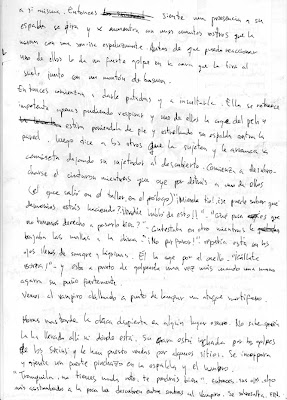 a sí misma. Entonces siente una presencia a su
espalda se gira y encuentra un unos cuantos rostros que la
miran con una sonrisa espeluznante. Antes de que pueda reaccionar
uno de ellos le da un fuerte golpe en la cara que la tira al
suelo junto con un montón de basura.
Entonces comienzan a darle patadas y a insultarla. Ella se retuerce
impotente apenas pudiendo respirar y uno de ellos la coge del pelo
estira poniéndola de pie y estrellando su espalda contra la
pared. Luego dice a los otros que la sujeten y le arranca la
camiseta dejando su sujetador al descubierto. Comienza a desabro-
charse el cinturón mientras que oye por detrás a uno de ellos
(el que salió en el taller, en el prólogo) "¡Mierda tío!, ¡se puede saber que
demonios estás haciendo?
no tenemos derecho a pasarlo bien?" - Contestaba en otro mientras le
bajaba las mallas a la dama. "¡No por favor!" repetía esta con los
ojos llenos de sangre y lágrimas. Él la coge por el cuello. "¡Cállate
zorra!" - y esta a punto de golpearla una vez más cuando una mano
agarra su puño fuertemente.
Vemos al vampiro a punto de lanzar un ataque mortífero.
Horas más tarde la chica despierta en algún lugar oscuro. No sabe quién
la ha llevado allí ni dónde está. Su cara está hinchada por los golpes
de los sucios y le han puesto vendas por algunos sitios. Se incorpora
y siente un fuerte pinchazo en la espalda y el hombro.
"Tranquila, no tienes nada roto, te pondrás bien". Entonces sus ojos, algo
más acostumbrados a la poca luz descubren entre sombras al vampiro.